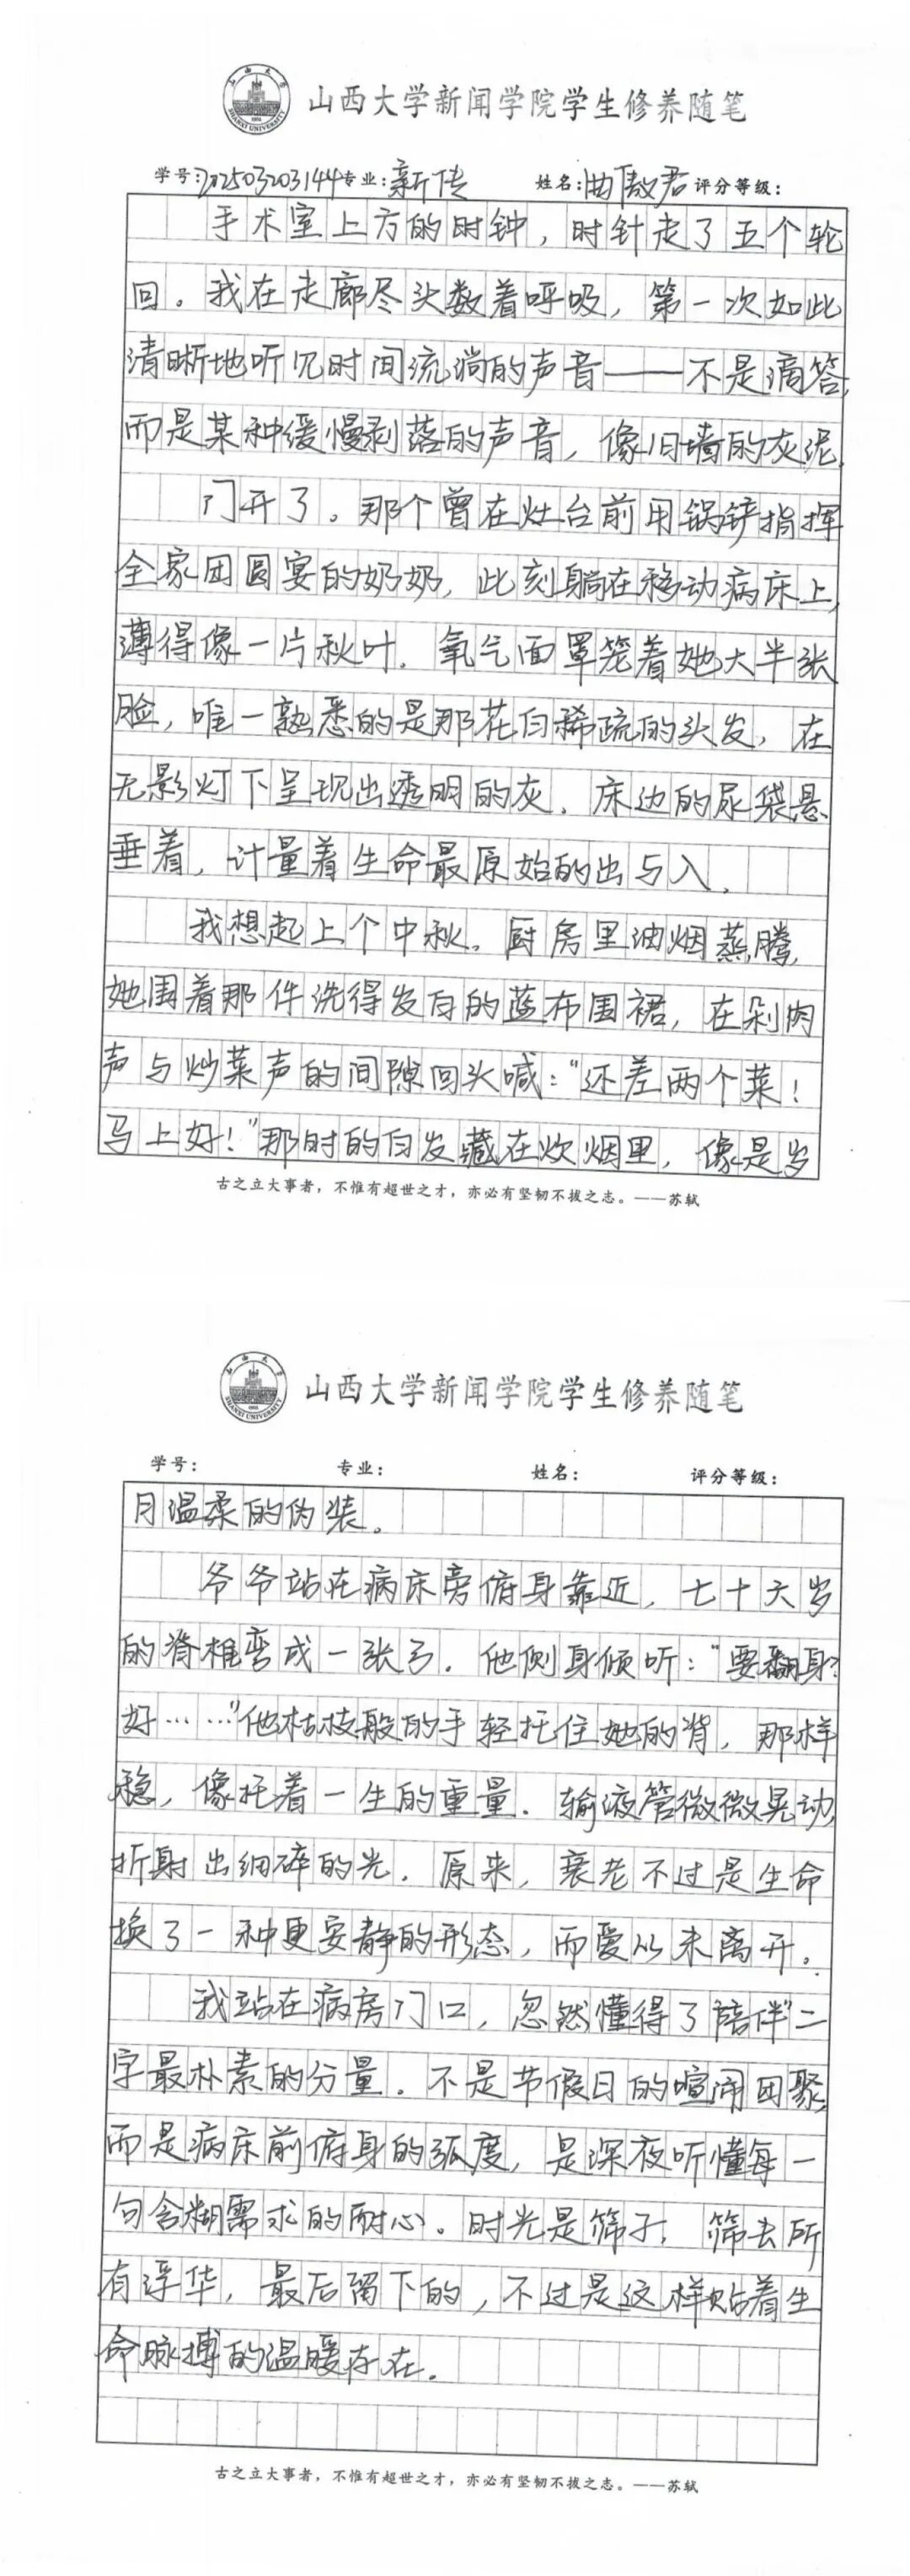 山西大学新闻学院学生修养随笔
学号:202503203144专业:新传 姓名:曲傲君 评分等级:
手术室上方的时钟，时针走了五个轮
回。我在走廊尽头数着呼吸，第一次如此
清晰地听见时间流淌的声音——不是滴答，
而是某种缓慢剥落的声音，像旧墙的灰泥.
门开了。那个曾在灶台前用锅铲指挥
全家团圆宴的奶奶，此刻躺在移动病床上，
薄得像一片秋叶.氧气面罩笼着她大半张
脸，唯一熟悉的是那花白稀疏的头发，在
无影灯下呈现出透明的灰.床边的尿袋悬
垂着，计量着生命最原始的出与入.
我想起上个中秋.厨房里油烟蒸腾，
她围着那件洗得发白的蓝布围裙，在剁肉
声与炒菜声的间隙回头喊：“还差两个菜！
马上好！”那时的白发藏在炊烟里，像是岁
古之立大事者，不惟有超世之才，亦必有坚韧不拔之志。——苏轼
山西大学新闻学院学生修养随笔
学号: 专业: 姓名: 评分等级:
月温柔的伪装。
爷爷站在病床旁俯身靠近，七十六岁
的脊椎弯成一张弓.他侧身倾听：“要翻身？
好……”他枯枝般的手轻托住她的背，那样
稳，像托着一生的重量.输液管微微晃动，
折射出细碎的光.原来，衰老不过是生命
换了一种更安静的形态，而爱从未离开。
我站在病房门口，忽然懂得了“陪伴”二
字最朴素的分量.不是节假日的喧闹团聚，
而是病床前俯身的弧度，是深夜听懂每一
句含糊需求的耐心。时光是筛子，筛去所
有浮华，最后留下的，不过是这样贴着生
命脉搏的温暖存在.
古之立大事者，不惟有超世之才，亦必有坚韧不拔之志。——苏轼